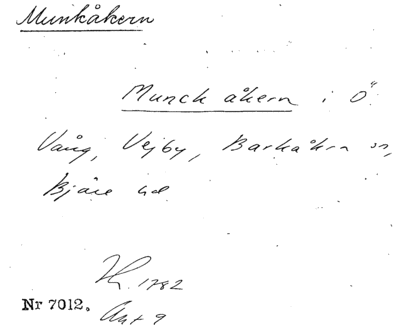 Munkåkern
Munck åkern i Ö
Vång, Vejby, Barkåkra sn,
Bjäre hd
1782
Nr 7012. Akt 9